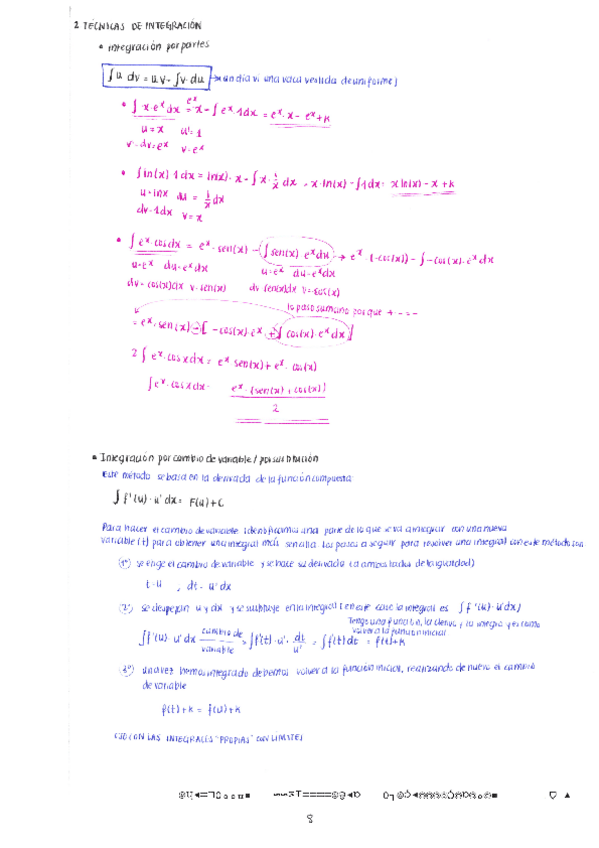 2 TÉCNICAS DE INTEGRACIÓN
• Integración por partes
∫u dv = u·v - ∫v·du → un día vi una vaca vestida de uniforme]
• ∫ x·e^x dx = x - ∫ e^x·1dx = e^x·x - e^x + k
e^x
u = x u' = 1
v - dv = e^x v = e^x
• ∫ ln(x) 1dx = ln(x)·x - ∫ x·1/x dx = x·ln(x) - ∫1dx = x ln(x) - x + k
u = lnx du = 1/x dx
dv = 1dx v = x
• ∫ e^x·cosdx = e^x·sen(x) - ∫ sen(x) e^x dx → e^x·(-cos(x)) - ∫ -cos(x)·e^x dx
u = e^x du = e^x dx u = e^x du = e^x dx
dv = cos(x)dx v = sen(x) dv sen(x)dx v = -cos(x)
lo paso sumando porque + - = -
= e^x·sen(x) - [ -cos(x)·e^x + ∫ cos(x)·e^x dx ]
2 ∫ e^x·cosxdx = e^x sen(x) + e^x·cos(x)
∫ e^x·cosxdx = e^x·(sen(x) + cos(x))
2
• Integración por cambio de variable / por sustitución
Este método se basa en la derivada de la función compuesta:
∫ f'(u)·u'dx = F(u) + C
Para hacer el cambio de variable identificamos una parte de lo que se va a integrar con una nueva
variable (t) para obtener una integral más sencilla. Los pasos a seguir para resolver una integral con este método son
1º se elige el cambio de variable y se hace su derivada (a ambos lados de la igualdad)
t = u , dt = u'dx
2º se despejan u y dx y se sustituye en la integral (en este caso la integral es ∫ f'(u)·u'dx)
Tengo una función, la derivo y la integro
volver a la función inicial
∫ f'(u)·u'dx cambio de variable → ∫ f'(t)·u'·dt/u' = ∫ f'(t)dt = f(t) + k
3º una vez hemos integrado debemos volver a la función inicial, realizando de nuevo el cambio
de variable
f(t) + k = f(u) + k
OJO CON LAS INTEGRALES "PROPIAS" CON LIMITES
8